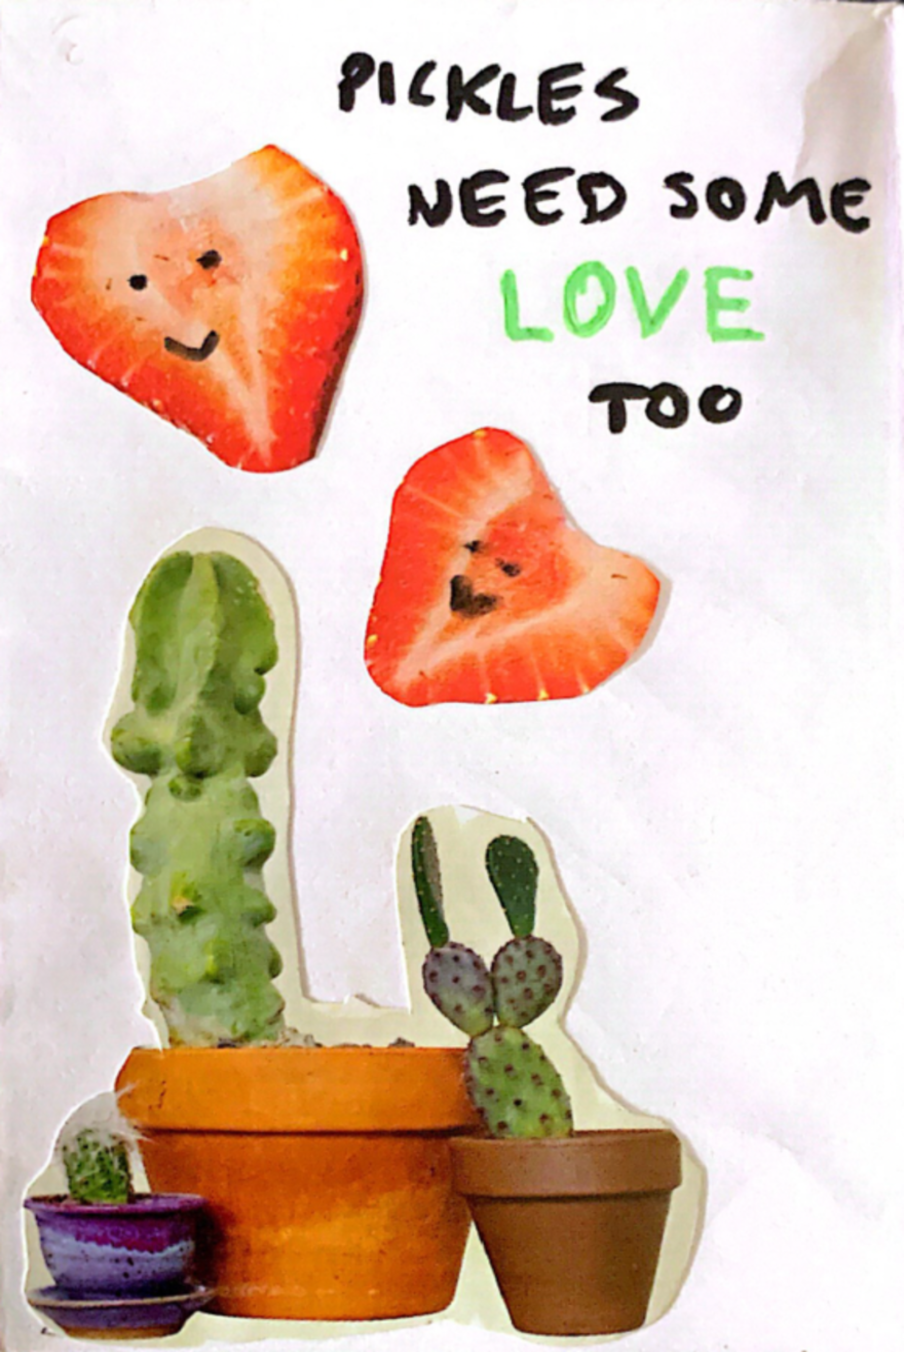 PICKLES
NEED SOME
LOVE
TOO